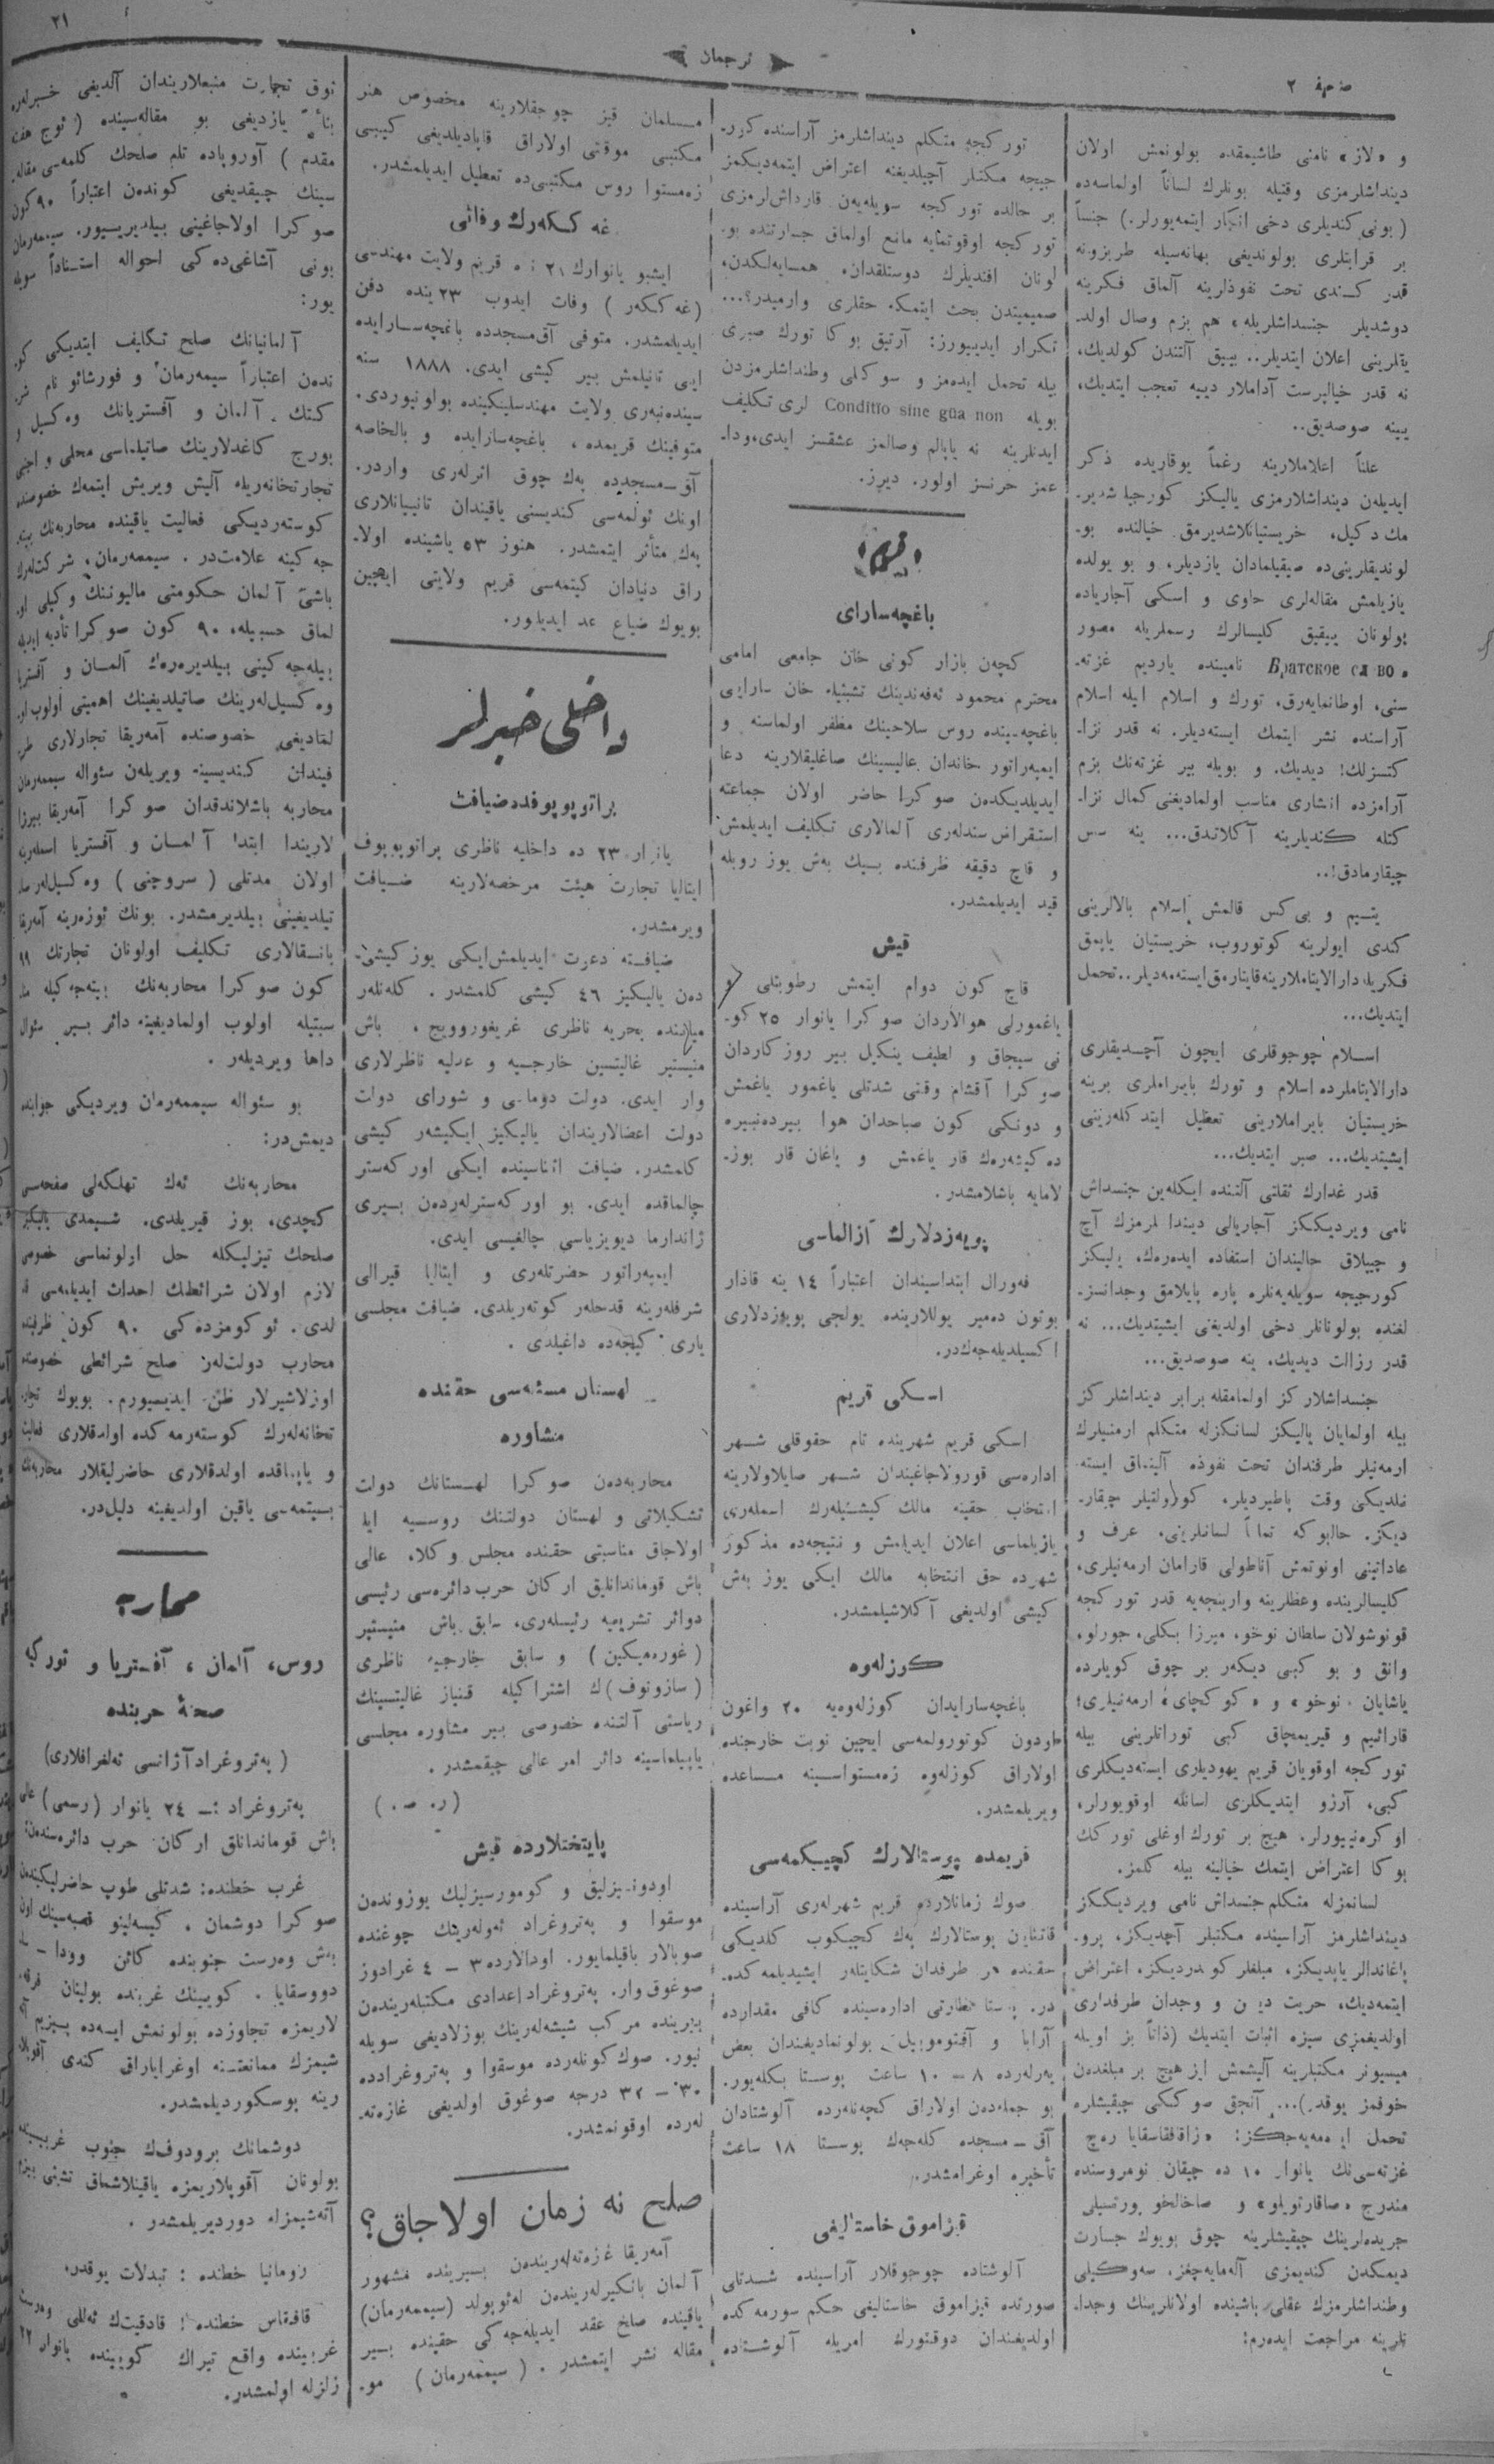 صحيفه ٢
ترجمان
٢١
و «لاز» نامنی طاشيمقده بولونمش اولان
دينداشلرمزی وقتيله بونلرك لساناً اولماسه‌ده
(بونی كنديلری دخی انكار ايتمه‌يورلر.) جنساً
بر قرابتلری بولونديغی بهانه‌سيله طربزونه
قدر كندی تحت نفوذلرينه آلماق فكرينه
دوشديلر جنسداشلريله» هم بزم وصال اولد-
يقلرينی اعلان ايتديلر.. بيبق آلتندن كولديك،
نه قدر خياليرست آداملار دييه تعجب ايتديك،
يينه صوصديق..
علناً اعلاملارينه رغماً يوقاريده ذكر
ايديله‌ن دينداشلارمزی ياليكز كورجيلشدير-
مك دكيل، خريستيانلاشديرمق خيالنده بو-
لونديقلرينی‌ده صيقيلمادان يازديلر، و بو يولده
يازيلمش مقاله‌لری حاوی و اسكی آجارياده
بولونان ييقيق كليسالرك رسملريله مصور
«Братское слово» نامينده يارديم غزته-
سنی، اوطانمايه‌رق، تورك و اسلام ايله اسلام
آراسنده نشر ايتمك ايسته‌ديلر. نه قدر نزا-
كتسزلك! ديديك. و بويله بير غزته‌نك بزم
آرامزده انشاری مناسب اولماديغنی كمال نزا-
كتله كنديلرينه آكلاتدق... ينه سس
چيقارمادق!..
يتيم و بی كس قالمش اسلام بالالرينی
كندی ايولرينه كوتوروب، خريستيان ياپمق
فكريله دارالايتاملارينه قايتارمق ايسته‌مه‌ديلر.. تحمل
ايتديك...
اسلام چوجوقلری ايچون آچديقلری
دارالايتاملرده اسلام و تورك بايراملری يرينه
خريستيان بايراملارينی تعطيل ايتدكله‌رينی
ايشيتديك... صبر ايتديك...
قدر غدارك ثقلتی آلتنده ايكله‌ين جنسداش
نامی ويرديككز آجاريالی ديندا لرمزك آچ
و چيپلاق حاليندن استفاده ايده‌رەك، ياليكز
كورجيجه سويليه‌نلره پاره پايلامق وجدانسز-
لغنده بولونانلر دخی اولديغنی ايشيتديك... نه
قدر رزالت ديديك. ينه صوصديق...
جنسداشلار كز اولمامقله برابر دينداشلر كز
بيله اولمايان ياليكز لسانكزله متكلم ارمنيلرك
ارمه‌نيلر طرفندان تحت نفوذه آلينماق ايسته-
نلديكی وقت پاطيرديلر، كورولتيلر چيقار-
ديكز. حالبوكه تماماً لسانلرينی، عرف و
عاداتينی اونوتمش آناطولی قارامان ارمه‌نيلری،
كليسالرينده وعظلرينه وارينجه‌يه قدر توركجه
قونوشولان سلطان نوخو، ميرزا بكلی، جورلو،
وانق و بو كبی ديكەر بر چوق كويلرده
ياشايان «نوخو» و «كوكچای» ارمه‌نيلری؛
قارائيم و قيريمچاق كبی تورانلرينی بيله
توركجه اوقويان قريم يهوديلری ايسته‌ديكلری
كبی، آرزو ايتديكلری لسانله اوقويورلر،
اوكره‌نييورلر. هيچ بر تورك اوغلی توركك
بوكا اعتراض ايتمك خيالينه بيله كلمز.
لسانمزله متكلم جنسداش نامی ويرديككز
دينداشلرمز آراسينده مكتبلر آچديكز، پرو-
پاغاندالر ياپديكز، مبلغلر كوندرديكز، اعتراض
ايتمه‌ديك، حريت دين و وجدان طرفداری
اولديغمزی سيزه اثبات ايتديك (ذاتاً بز اويله
ميسيونر مكتبلرينه آليشمش ايز هيچ بر مبلغدن
خوفمز يوقدر)... آنجق صوككی چيقيشلره
تحمل ايده‌ميه‌جكز: «زاقافقاسقايا ره‌چ
غزته‌سی‌نك يانوار ١٠ ده چيقان نومروسنده
مندرج «صاقارتويلو» و صاخالخو پورتسيلی
جريده‌لرينك چيقيشلرينه چوق بويوك جسارت
ديمكدن كنديمزی آله‌مايه‌جغز. سه‌وكيلی
وطنداشلرمزك عقلی باشينده اولانلرينك وجدا-
نلرينه مراجعت ايده‌رم:
توركجه متكلم دينداشلرمز آراسنده كور-
جيجه مكتبلر آچيلديغنه اعتراض ايتمه‌ديكمز
بر حالده توركجه سويله‌يه‌ن قارداش‌لرمزی
توركجه اوقوتمايه مانع اولماق جسارتنده بو-
لونان افنديلرك دوستلقدان، همسايه‌لكدن،
صميميتدن بحث ايتمكه حقلری وارميدر؟...
تكرار ايدييورز: آرتيق بوكا تورك صبری
بيله تحمل ايده‌مز و سوكلی وطنداشلرمزدن
بويله Conditio sine gúa non لری تكليف
ايدنلرينه نه ياپالم وصالمز عشقسز ايدی، ودا-
عمز حرنسز اولور. ديرز.
قريم
باغچه‌سارای
كچه‌ن بازار كونی خان جامعی امامی
محترم محمود ئه‌فه‌ندينك تشبثيله خان سارايی
باغچه‌سينده روس سلاحينك مظفر اولماسنه و
ايمپه‌راتور خاندان عاليسينك صاغليقلارينه دعا
ايديلديكدن صوكرا حاضر اولان جماعته
استقراض سندله‌ری آلمالاری تكليف ايديلمش
و قاچ دقيقه ظرفنده بيك بەش يوز روبله
قيد ايديلمشدر.
قيش
قاچ كون دوام ايتمش رطوبتلی و
ياغمورلی هوالاردان صوكرا يانوار ٢٥ كو-
نی سيجاق و لطيف ينكيل بير روزكاردان
صوكرا آقشام وقتی شدتلی ياغمور ياغمش
و دونكی كون صباحدان هوا بيردەنبيره
دەكيشه‌رەك قار ياغمش و ياغان قار بوز-
لامايه باشلامشدر.
پويه‌زدلارك آزالماسی
فه‌ورال ابتداسيندان اعتباراً ١٤ ينه قادار
بوتون دەمير يوللارينده يولجی پويه‌زدلاری
اكسيلديله‌جه‌كدر.
اسكی قريم
اسكی قريم شهرينده تام حقوقلی شهر
ادارەسی قورولاجاغيندان شهر صايلاولارينه
انتخاب حقينه مالك كيشيله‌رك اسمله‌ری
يازيلماسی اعلان ايديلمش و نتيجه‌ده مذكور
شهرده حق انتخابه مالك ايكی يوز بەش
كيشی اولديغی آكلاشيلمشدر.
كوزله‌وه
باغچه‌سارايدان كوزله‌وه‌يه ٢٠ واغون
اودون كوتورولمه‌سی ايچين نوبت خارجنده
اولاراق كوزله‌وه زه‌مستواسينه مساعده
ويريلمشدر.
قريمده پوستالارك كچيكمه‌سی
صوك زمانلارده قريم شهرله‌ری آراسينده
قاتنايان پوستالارك پەك كچيكوب كلديكی
حقنده هر طرفدان شكايتله‌ر ايشيديلمه‌كده-
در. پوستا نظارتی ادارەسينده كافی مقدارده
آرابا و آفتوموبيل بولونماديغندان بعض
يەرلەرده ٨ – ١٠ ساعت پوستا بكله‌يور.
بو جمله‌دەن اولاراق كچه‌نلەرده آلوشتادان
آق – مسجده كله‌جەك پوستا ١٨ ساعت
تأخيره اوغرامشدر.
قيزاموق خاستاليغی
آلوشتاده چوجوقلار آراسينده شدتلی
صورتده قيزاموق خاستاليغی حكم سورمه‌كده
اولديغندان دوقتورك امريله آلوشتاده
مسلمان قيز چوجقلارينه مخصوص هنر
مكتبی موقتی اولاراق قاپاديلديغی كيبی
زەمستوا روس مكتبی‌ده تعطيل ايديلمشدر.
غه ككه‌رك وفاتی
ايشبو يانوارك ٢١ نده قريم ولايت مهندسی
(غه ككه‌ر) وفات ايدوب ٢٣ ينده دفن
ايديلمشدر. متوفی آق‌مسجدده باغچه‌سارايده
ايی تانيلمش بير كيشی ايدی. ١٨٨٨ سنه
سيندەنبەری ولايت مهندسليكينده بولونيوردی.
متوفينك قريمده، باغچه‌سارايده و بالخاصه
آق–مسجدده پەك چوق اثرله‌ری واردر.
اونك ئولمه‌سی كنديسنی ياقيندان تانييانلاری
پەك متأثر ايتمشدر. هنوز ٥٣ ياشينده اولا-
راق دنيادان كيتمه‌سی قريم ولايتی ايچين
بويوك ضياع عد ايديلور.
داخلی خبرلر
پراتوپوپوفده ضيافت
يانوار ٢٣ ده داخليه ناظری پراتوپوپوف
ايتاليا تجارت هيئت مرخصه‌لارينه ضيافت
ويرمشدر.
ضيافته دعوت ايديلمش‌ايكی يوز كيشی-
دەن ياليكيز ٤٦ كيشی كلمشدر. كله‌نلەر
ميانينده بحريه ناظری غريغوروويچ، باش
مينيستير غاليتسين خارجيه و عدليه ناظرلاری
وار ايدی. دولت دوماسی و شورای دولت
دولت اعضالاريندان ياليكيز ايكيشەر كيشی
كلمشدر. ضيافت اثناسينده ايكی اوركەستر
چالماقده ايدی. بو اوركەسترلەردەن بيری
ژاندارما ديويزياسی چالغيسی ايدی.
ايمپه‌راتور حضرتلەری و ايتاليا قيرالی
شرفلەرينه قدحلەر كوتەريلدی. ضيافت مجلسی
ياری كيجه‌ده داغيلدی.
لهستان مسئله‌سی حقنده
مشاوره
محاربه‌دەن صوكرا لهستانك دولت
تشكيلاتی و لهستان دولتنك روسيه ايله
اولاجاق مناسبتی حقنده مجلس وكلا، عالی
باش قوماندانليق اركان حرب دائرەسی رئيسی
دوائر تشريعيه رئيسلەری، سابق باش مينيستير
(غورەميكين) و سابق خارجيه ناظری
(سازونوف)ك اشتراكيله قنياز غاليتسينك
رياستی آلتنده خصوصی بير مشاوره مجلسی
ياپيلماسينه دائر امر عالی چيقمشدر.
(ر. ص.)
پايتختلارده قيش
اودونسيزليق و كومورسيزليك يوزوندەن
موسقوا و پەتروغراد ئەولەرينك چوغنده
صوبالار ياقيلمايور. اودالارده ٣ – ٤ غرادوز
صوغوق وار. پەتروغراد اعدادی مكتبلەريندەن
بيرينده مركب شيشه‌لەرينك بوزلاديغی سويله-
نيور. صوك كونلەرده موسقوا و پەتروغرادده
٣٠ – ٣٢ درجه صوغوق اولديغی غازەته-
لەرده اوقونمشدر.
صلح نه زمان اولاجاق؟
آمه‌ريقا غزەته‌لەريندەن بيرينده مشهور
آلمان بانكيرلەريندەن لەئوپولد (سيممەرمان)
ياقينده صلح عقد ايديله‌جەكی حقينده بير
مقاله نشر ايتمشدر. (سيممەرمان) مو-
ثوق تجارت منبعلاريندان آلديغی خبرلەره
بناءً يازديغی بو مقاله‌سينده (ئوچ هفته
مقدم) آوروپاده تلم صلحك كلمه‌سی مقاله-
سينك چيقديغی كوندەن اعتباراً ٩٠ كون
صوكرا اولاجاغينی بيلديرييور. سيممەرمان
بونی آشاغی‌ده‌كی احواله استناداً سويله
يور:
آلمانيانك صلح تكليف ايتديكی كو-
ندەن اعتباراً سيممەرمان و فورشائو نام شر-
كتك آلمان و آفستريانك وەكسيل و
بورج كاغدلارينك صاتيلماسی محلی و اجنبی
تجارتخانه‌لريله آليش ويريش ايتمەك خصوصنده
كوستەرديكی فعاليت ياقينده محاربه‌نك بيته-
جه‌كينه علامت‌در. سيممەرمان، شركتلەرك
باشی آلمان حكومتی ماليوننك وكيلی او-
لماق حسبيله، ٩٠ كون صوكرا تأديه ايديله
بيله‌جه‌كينی بيلديرەرەك آلمان و آفستريا
وەكسيل‌لەرينك صاتيلديغينك اهميتی اولوب او-
لماديغی خصوصنده آمه‌ريقا تجارلاری طر-
فيندان كنديسينه ويريلەن سئواله سيممەرمان
محاربه باشلاندقدان صوكرا آمه‌ريقا بيرزا
لاريندا ابتدا آلمان و آفستريا اسمله‌رينه
اولان مدتلی (سروچنی) وەكسيل‌لەر صا-
تيلديغينی بيلديرمشدر. بونك ئوزەرينه آمه‌ريقا
بانقالاری تكليف اولونان تجارتك ٩٩
كون صوكرا محاربه‌نك بيته‌جه‌كيله منا-
سبتيله اولوب اولماديغينه دائر بير سئوال
داها ويرديلەر.
بو سئواله سيممەرمان ويرديكی جوابنده
ديمش‌در:
محاربه‌نك ئەك تهلكه‌لی صفحه‌سی
كچدی، بوز قيريلدی. شيمدی ياليكيز
صلحك تيزليكله حل اولونماسی خصوصی
لازم اولان شرائطك احداث ايديلمه‌سی قا-
لدی. ئوكومزده‌كی ٩٠ كون ظرفينده
محارب دولت‌لەر صلح شرائطی خصوصنده
اوزلاشيرلار ظن ايديييورم. بويوك تجار-
تخانه‌لەرك كوستەرمه‌كده اولدقلاری فعاليت
و ياپماقده اولدقلاری حاضرليقلار محاربه‌نك
بيتمه‌سی ياقين اولديغينه دليل‌در.
محاربه
روس، آلمان، آفستريا و توركيه
صحنهٔ حربنده
(پەتروغراد آژانسی تەلغرافلاری)
پەتروغراد :– ٢٤ يانوار (رسمی) عالی
باش قوماندانلق اركان حرب دائرەسندەن:
غرب خطنده: شدتلی طوپ حاضرليكيندەن
صوكرا دوشمان، كيسه‌لينو قصبه‌سينك اون
بەش وەرست جنوبنده كائن وودا –
دووسقايا. كويينك غربنده بولينان فرقه-
لاريمزه تجاوزده بولونمش ايسه‌ده بيزيم آتە-
شيمزك ممانعتينه اوغراياراق كندی آقوپلا-
رينه پوسكورديلمشدر.
دوشمانك برودوف‌ك جنوب غربيينده
بولونان آقوپلاريمزه ياقينلاشماق تشبثی بيزيم
آتەشيمزله دوردیريلمشدر.
رومانيا خطنده: تبدلات يوقدر.
قافقاس خطنده: قادقيت‌ك ئەللی وەرست
غربينده واقع تيراك كويينده يانوار ٢٢
زلزله اولمشدر.